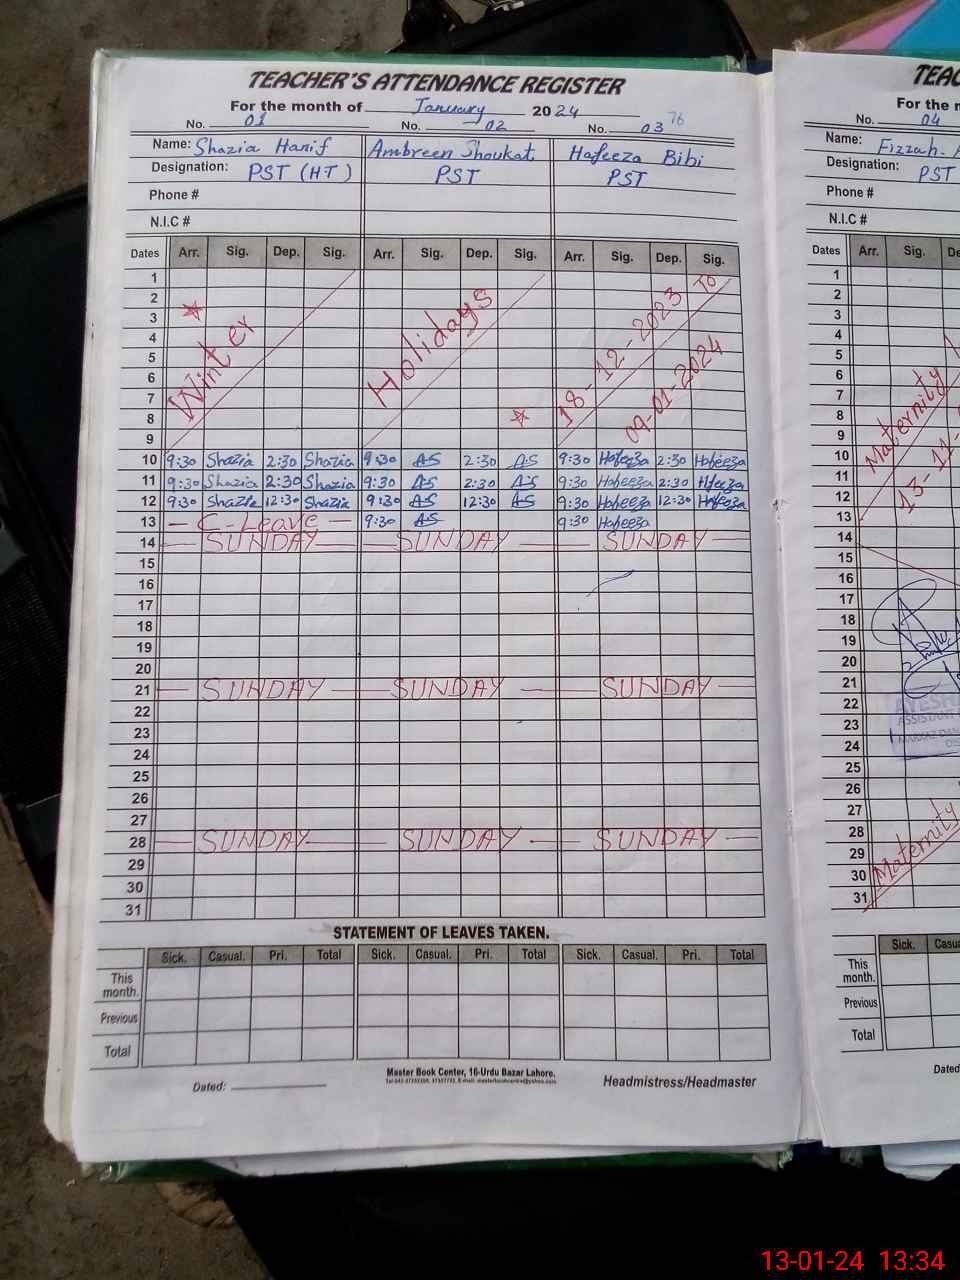 TEACHER'S ATTENDANCE REGISTER
For the month of January 2024
No. 01 No. 02 No. 03 76
Name: Shazia Hanif Ambreen Shoukat Hafeeza Bibi
Designation: PST (HT) PST PST
Phone #
N.I.C #
Dates Arr. Sig. Dep. Sig. Arr. Sig. Dep. Sig. Arr. Sig. Dep. Sig.
1
2
3
4
5
6
7
8
9
Winter Holidays 18-12-2023 To
09-01-2024
10 9:30 Shazia 2:30 Shazia 9:30 AS 2:30 AS 9:30 Hafeeza 2:30 Hafeeza
11 9:30 Shazia 2:30 Shazia 9:30 AS 2:30 AS 9:30 Hafeeza 2:30 Hafeeza
12 9:30 Shazia 12:30 Shazia 9:30 AS 12:30 AS 9:30 Hafeeza 12:30 Hafeeza
13 - C-Leave - 9:30 AS 9:30 Hafeeza
14 SUNDAY SUNDAY SUNDAY
15
16
17
18
19
20
21 SUNDAY SUNDAY SUNDAY
22
23
24
25
26
27
28 SUNDAY SUNDAY SUNDAY
29
30
31
STATEMENT OF LEAVES TAKEN.
Sick. Casual. Pri. Total Sick. Casual. Pri. Total Sick. Casual. Pri. Total
This month.
Previous
Total
Master Book Center, 16-Urdu Bazar Lahore.
Dated: Headmistress/Headmaster
TEAC
For the m
No. 04
Name: Fizzah.
Designation: PST
Phone #
N.I.C #
Dates Arr. Sig. De
1
2
3
4
5
6
7
8
9
10
11
12
13
Maternity
13-11-
14
15
16
17
18
19
20
21
22
23
24
AYESHA
ASSISTANT
25
26
27
28
29
30
31
Maternity
Sick. Casua
This month.
Previous
Total
Dated
13-01-24 13:34